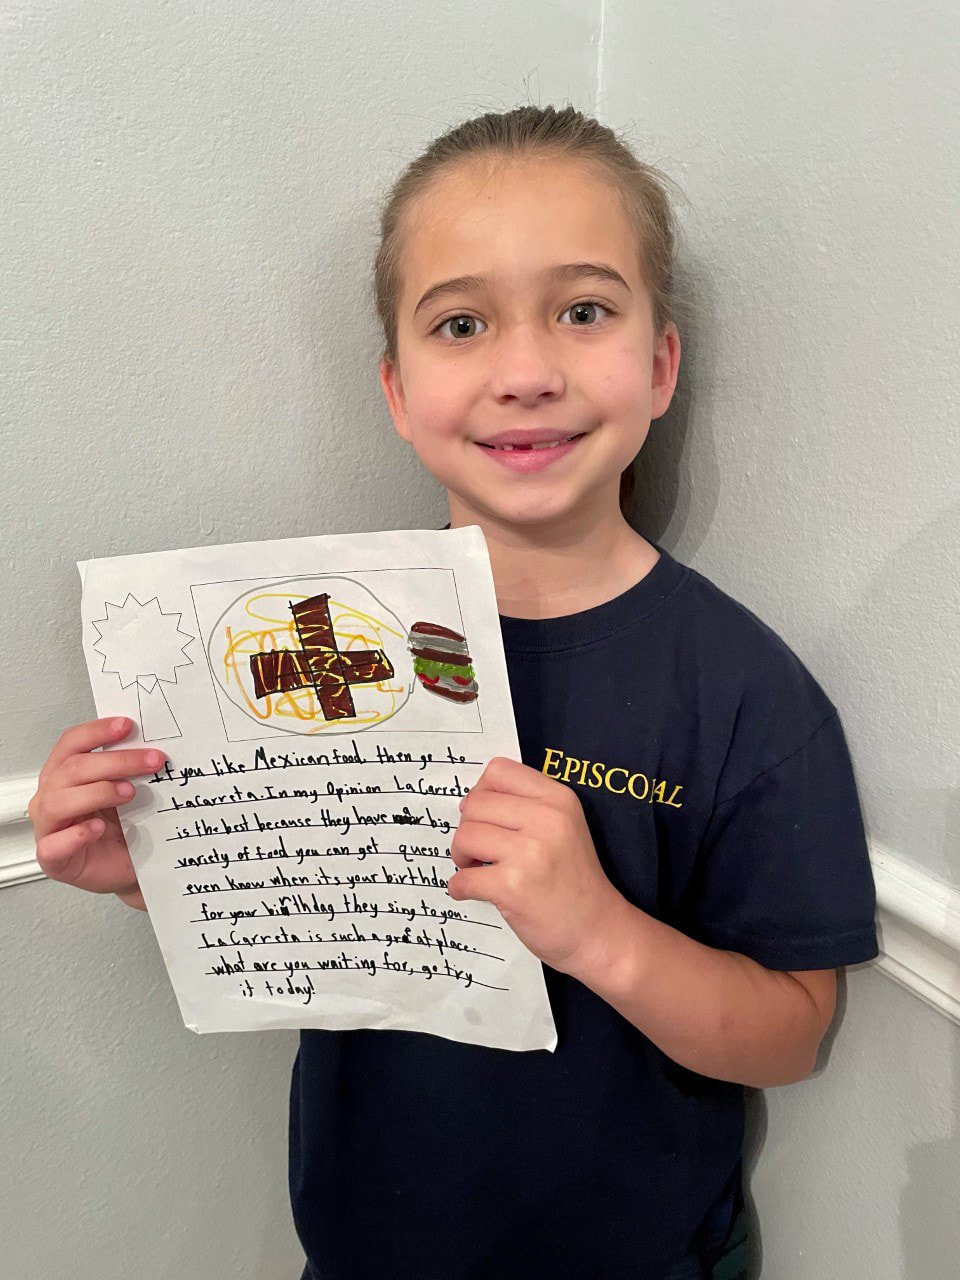 EPISCOPAL
If you like Mexican food then go to
LaCarreta. In my Opinion LaCarreta
is the best because they have big
variety of food you can get queso
even know when it's your birthday
for your birthday they sing to you.
LaCarreta is such a great place.
what are you waiting for, go try
it today!